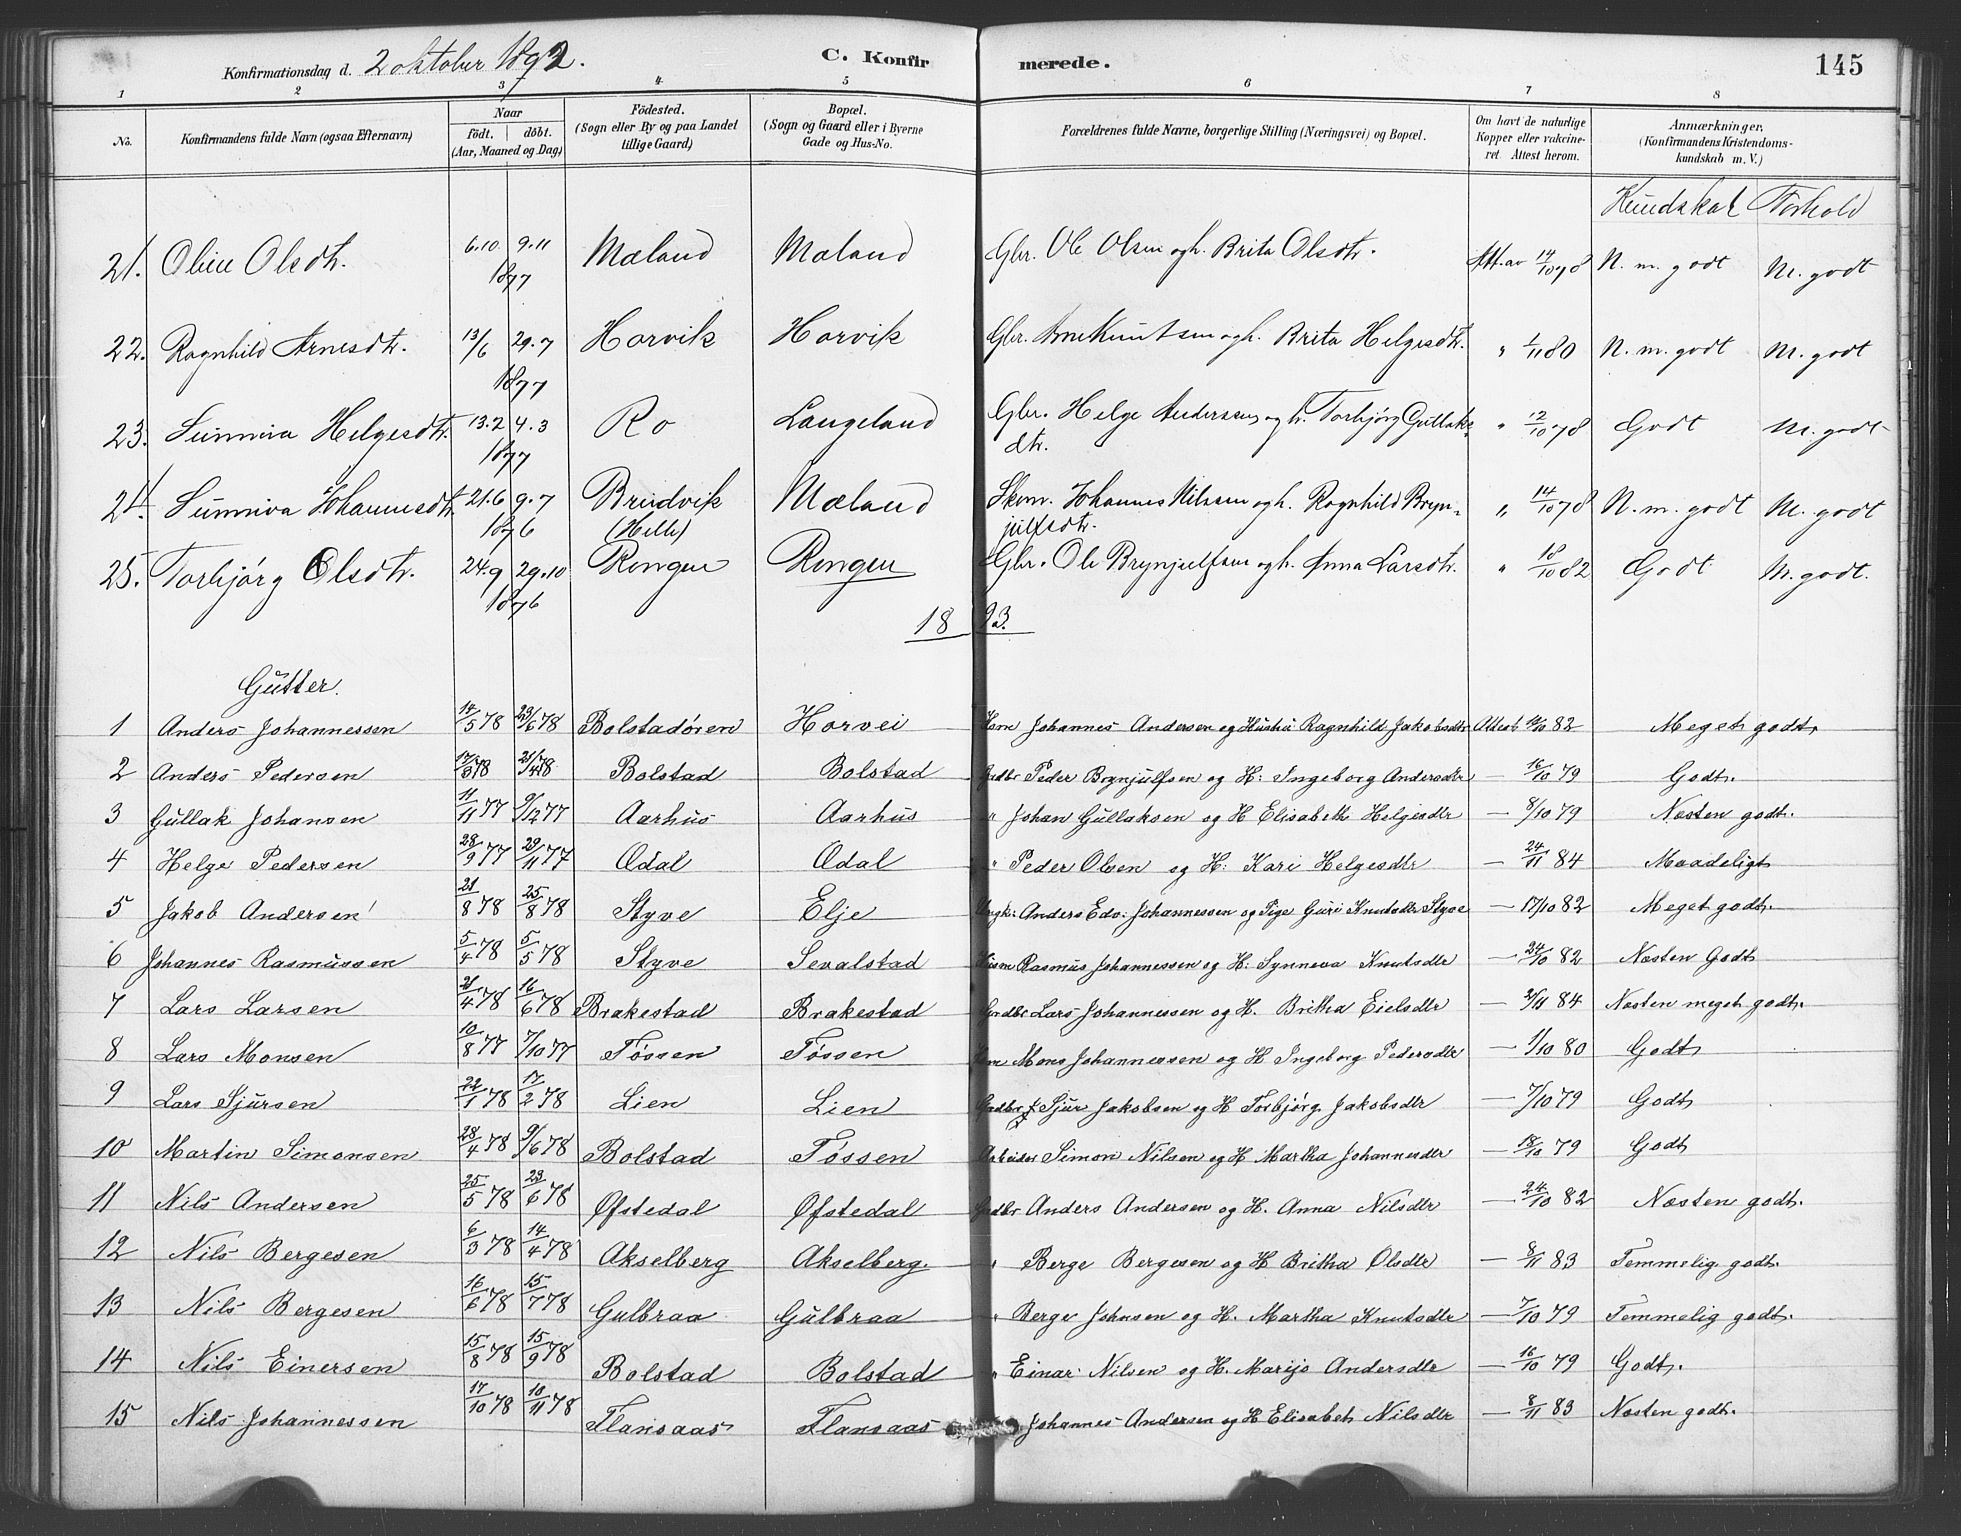 Konfirmationsdag d. 2 oktober 1892. C. Konfirmerede. 145
1 2 3 4 5 6 7 8
No. Konfirmandens fulde Navn (ogsaa Efternavn) Naar födt. döbt. (Aar, Maaned og Dag) Födested. (Sogn eller By og paa Landet tillige Gaard) Bopæl. (Sogn og Gaard eller i Byerne Gade og Hus-No. Forældrenes fulde Navne, borgerlige Stilling (Næringsvei) og Bopæl. Om havt de naturlige Kopper eller vakcineret Attest herom. Anmærkninger. (Konfirmandens Kristendomskundskab m. V.)
Kundskab Forhold
21. Oline Olsdtr. 6.10 9.11 1877 Mæland Mæland Gbr. Ole Olsen og h. Brita Olsdtr. Att. av 14/10 78 N. m. godt M. godt
22. Ragnhild Arnesdtr. 13/6 29.7 1877 Horvik Horvik Gbr. Arne Knutsen og h. Brita Helgesdtr. " 1/11 80 N. m. godt M. godt
23. Sunniva Helgesdtr. 13.2 4.3 1877 Ro Langeland Gbr. Helge Anderssen og h. Torbjørg Gullaksdtr. " 12/10 78 Godt M. godt
24. Sunniva Johannesdtr. 21.6 9.7 1876 Brudvik (Helle) Mæland Skom. Johannes Nilssen og h. Ragnhild Brynjulfsdtr. " 14/10 78 N. m. godt M. godt
25. Torbjörg Olsdtr. 24.9 29.10 1876 Rongen Rongen Gbr. Ole Brynjulfsen og h. Anna Larsdtr. " 18/10 82 Godt M. godt.
1893.
Gutter.
1 Anders Johannessen 14/5 78 23/6 78 Bolstadören Horvei Hsm Johannes Andersen og Hustru Ragnhild Jakobsdtr Attest 14/10 82 Meget godt.
2 Anders Pedersen 17/3 78 21/4 78 Bolstad Bolstad Grdbr Peder Brynjulfsen og H: Ingeborg Andersdtr — 16/10 79 Godt.
3 Gullak Johansen 11/11 77 9/12 77 Aarhus Aarhus " Johan Gullaksen og H Elisabeth Helgesdtr — 8/10 79 Næsten godt.
4 Helge Pedersen 28/9 77 29/11 77 Ødal Ødal " Peder Olsen og H: Kari Helgesdtr — 24/11 84 Maadeligt
5 Jakob Andersen 21/8 78 25/8 78 Styve Elje Ungk: Anders Edv. Johannessen og Pige Guri Knutsdtr Styve — 17/10 82 Meget godt.
6 Johannes Rasmussen 5/4 78 5/5 78 Styve Sevalstad Husm Rasmus Johannessen og H: Synneva Knutsdtr — 24/10 82 Næsten Godt
7 Lars Larsen 21/4 78 16/6 78 Brakestad Brakestad Grdbr Lars Johannessen og H. Britha Eielsdtr — 3/11 84 Næsten meget godt.
8 Lars Monsen 10/8 77 7/10 77 Tøssen Tøssen Hsm Mons Johannessen og H Ingeborg Pedersdtr — 1/10 80 Godt
9 Lars Sjursen 22/1 78 17/2 78 Lien Lien Grdbr Sjur Jakobsen og H Torbjörg Jakobsdtr — 7/10 79 Godt
10 Martin Simonsen 28/4 78 9/6 78 Bolstad Tøssen Arbeider Simon Nilsen og H Martha Johannesdtr — 18/10 79 Godt
11 Nils Andersen 25/5 78 23/6 78 Øfstedal Øfstedal Grdbr Anders Andersen og H. Anna Nilsdtr — 24/10 82 Næsten godt.
12 Nils Bergesen 6/3 78 14/4 78 Akselberg Akselberg. " Berge Bergesen og H Britha Olsdtr — 8/11 83 Temmelig godt.
13 Nils Bergesen 16/6 78 15/7 78 Gulbraa Gulbraa " Berge Johnsen og H. Martha Knutsdtr — 7/10 79 Temmelig godt.
14 Nils Einersen 15/8 78 15/9 78 Bolstad Bolstad " Einar Nilsen og H. Marijo Andersdtr — 16/10 79 Godt.
15 Nils Johannessen 17/10 78 10/11 78 Flansaas Flansaas Johannes Andersen og H Elisabet Nilsdtr — 8/11 83 Næsten godt.